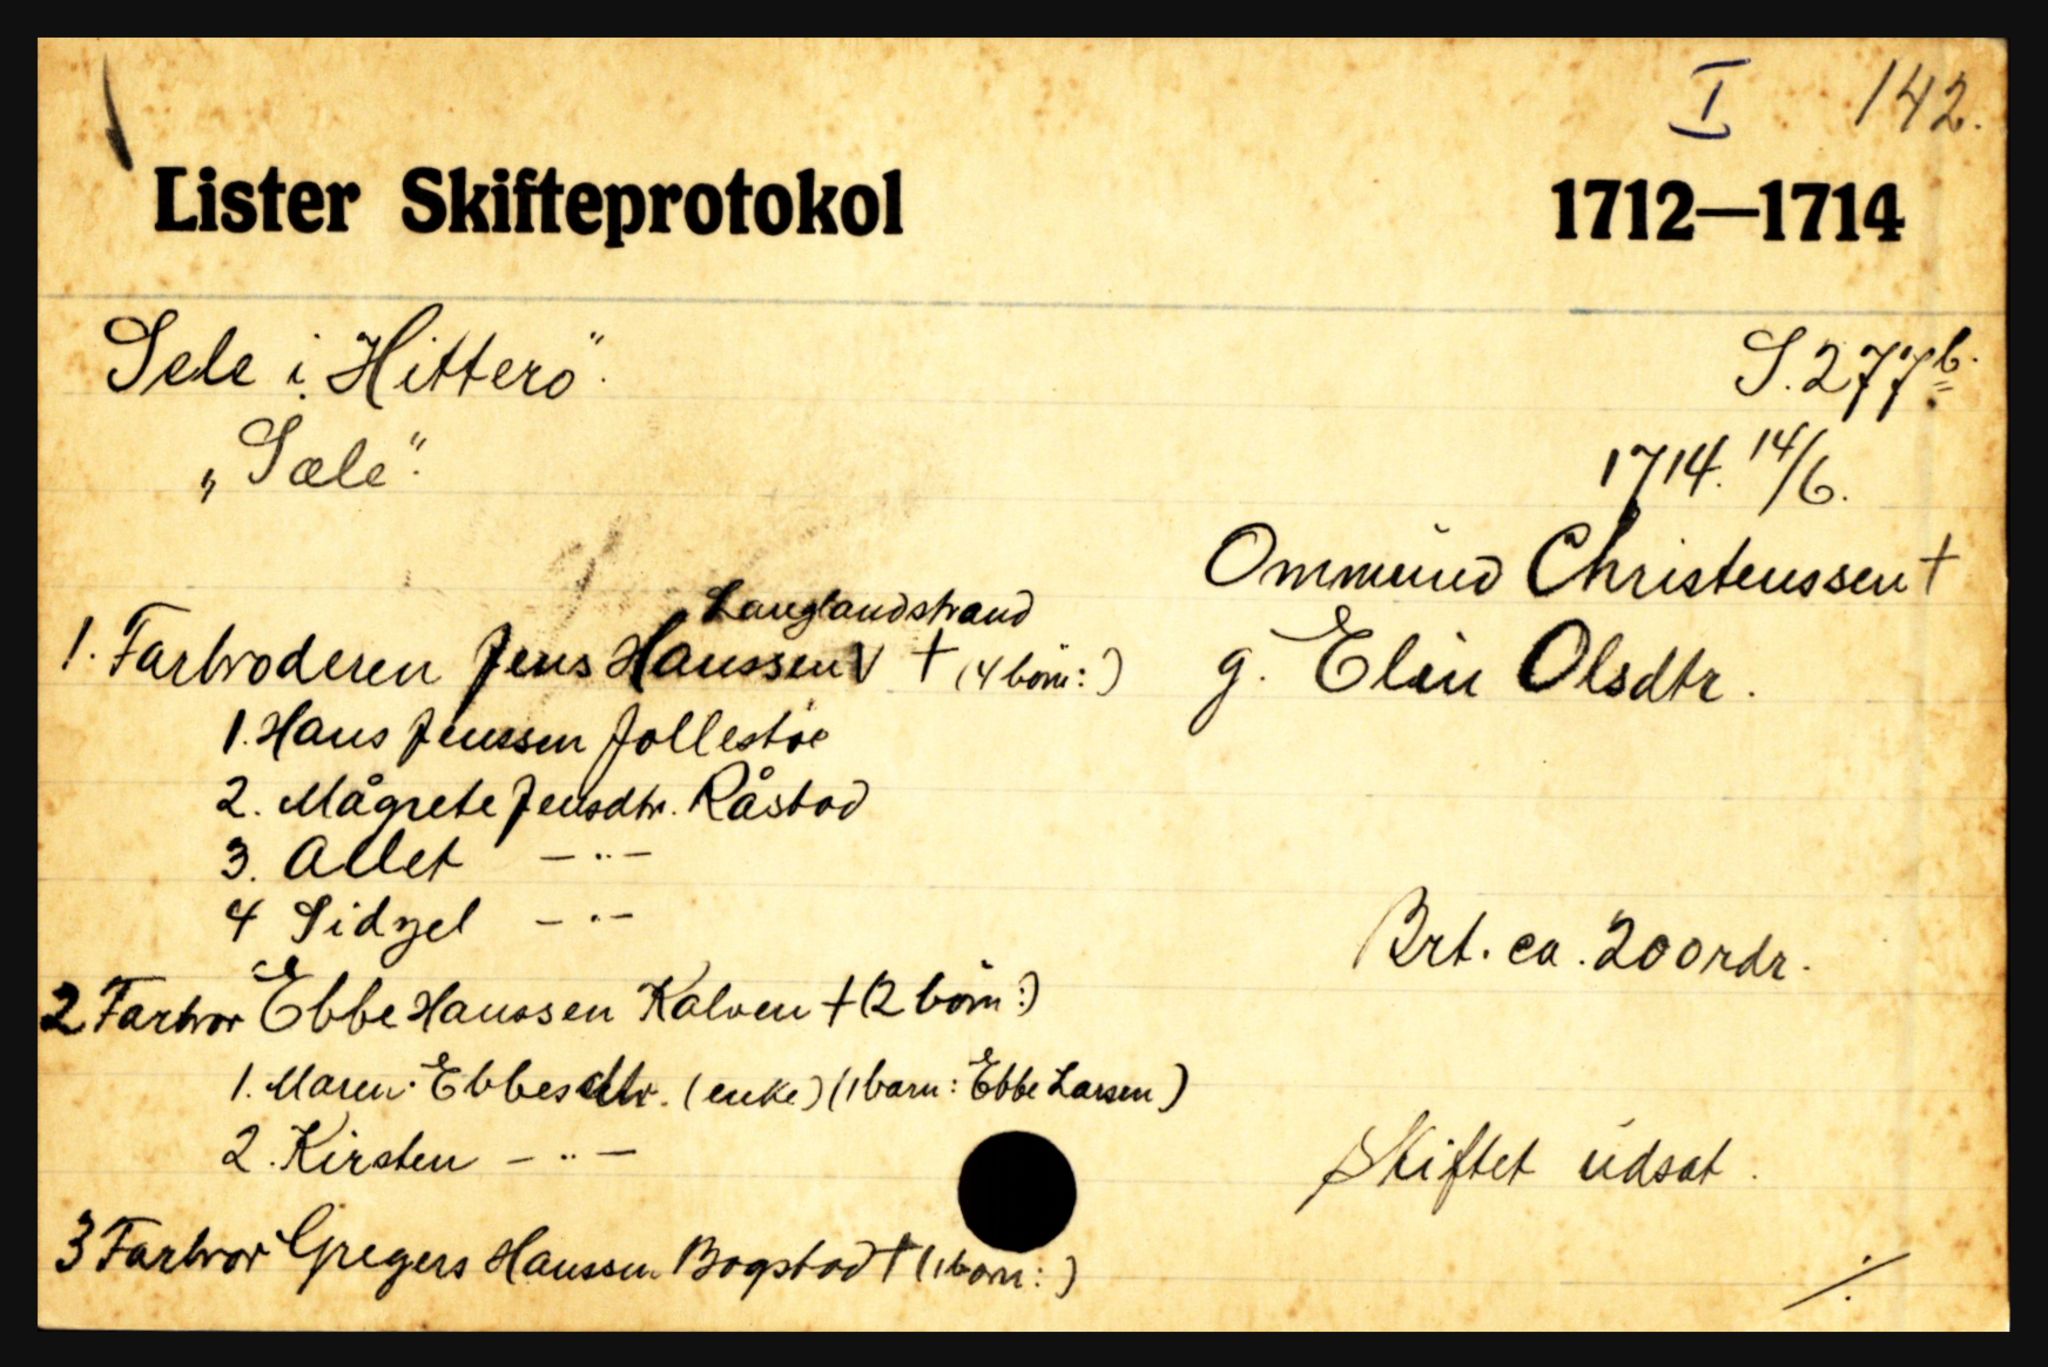 I 142.
Lister Skifteprotokol 1712—1714
Sele i Hitterö. S. 277b.
„Sæle". 1714. 14/6.
Ommund Christenssen †
g. Elin Olsdtr.
Langlandstrand
1. Farbroderen Jens Hanssen V † (4 börn:)
1. Hans Jenssen Jollestöe
2. Mågrete Jensdtr. Råstad
3. Allet — " —
4 Sidzel — " —
Brt. ca. 200 rdr.
2 Farbror Ebbe Hanssen Kalven † (2 börn:)
1. Maren Ebbesdtr. (enke) (1 barn: Ebbe Larsen)
2. Kirsten — " —
Skiftet udsat.
3 Farbror Gregers Hanssen Bogstad † (1 barn:)
./.